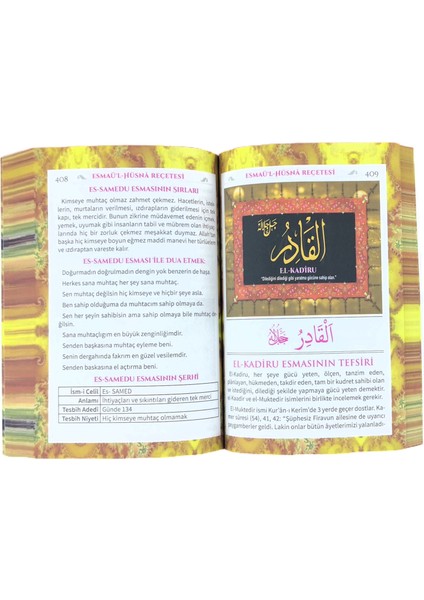 408 ESMAÜ'L-HÜSNÂ REÇETESİ
ES-SAMEDU ESMASININ SIRLARI
Kimseye muhtaç olmaz zahmet çekmez. Hacetlerin,
lerin, murtaların verilmesi, ızdırapların giderilmesi için tek
kapı, tek mercidir. Bunun zikrine müdavemet ederek,
uyumak gibi insanların tabii ve mübrem olan ihtiyaçları
hiç bir zorluk çekmez meşakkat duymaz. Allah'tan
başka hiç kimseye boyun eğmez maddi manevi her türlü
ve ızdıraptan vareste kalır.
ES-SAMEDU ESMASI İLE DUA ETMEK
Doğurmadın doğnulmadın dengin yok benzerin de haşa.
Herkes sana muhtaç her şey sana muhtaç.
Sen muhtaç değilsin hiç kimseye ve hiçbir şeye asla.
Ben sahip olduğuma da muhtacım sahip olmaya da
Sen her şeyin sahibisin ama sahip olmaya bile muhtaç de
ğilsin.
Sana muhtaçlığım en büyük zenginliğimdir.
Senden başkasına muhtaç eyleme beni.
Senin dergahında fakrım en güzel vesilemdir.
Senden başkasına el açtırma beni.
ES-SAMEDU ESMASININ ŞERHİ
İsm-i Celil Es- SAMED
Anlamı İhtiyaçları ve sıkıntıları gideren tek merci
Tesbih Adedi Günde 134
Tesbih Niyeti Hiç kimseye muhtaç olmamak
ESMAÜ'L-HÜSNÂ REÇETESİ 409
القادر
جل جلاله
EL-KADİRU
"Dilediğini dilediği gibi yaratma gücüne sahip olan."
اَلْقَادِرُ جل جلاله
EL-KADIRU ESMASININ TEFSİRİ
El-Kadiru, her şeye gücü yeten, ölçen, tanzim eden,
planlayan, hükmeden, takdir eden, tam bir kudret sahibi olan
ve istediğini istediği şekilde yapmaya gücü yeten demektir.
El Kadir ve el-Muktedir isimlerini birlikte incelemek gerekir.
El-Muktedir ismi Kur'ân-ı Kerîm'de 3 yerde geçer dostlar. Ka-
mer sûresi (54), 41, 42: "Şüphesiz Firavun ailesine de uyarıcı
peygamberler geldi. Lakin onlar bütün âyetlerimizi yalanladı-